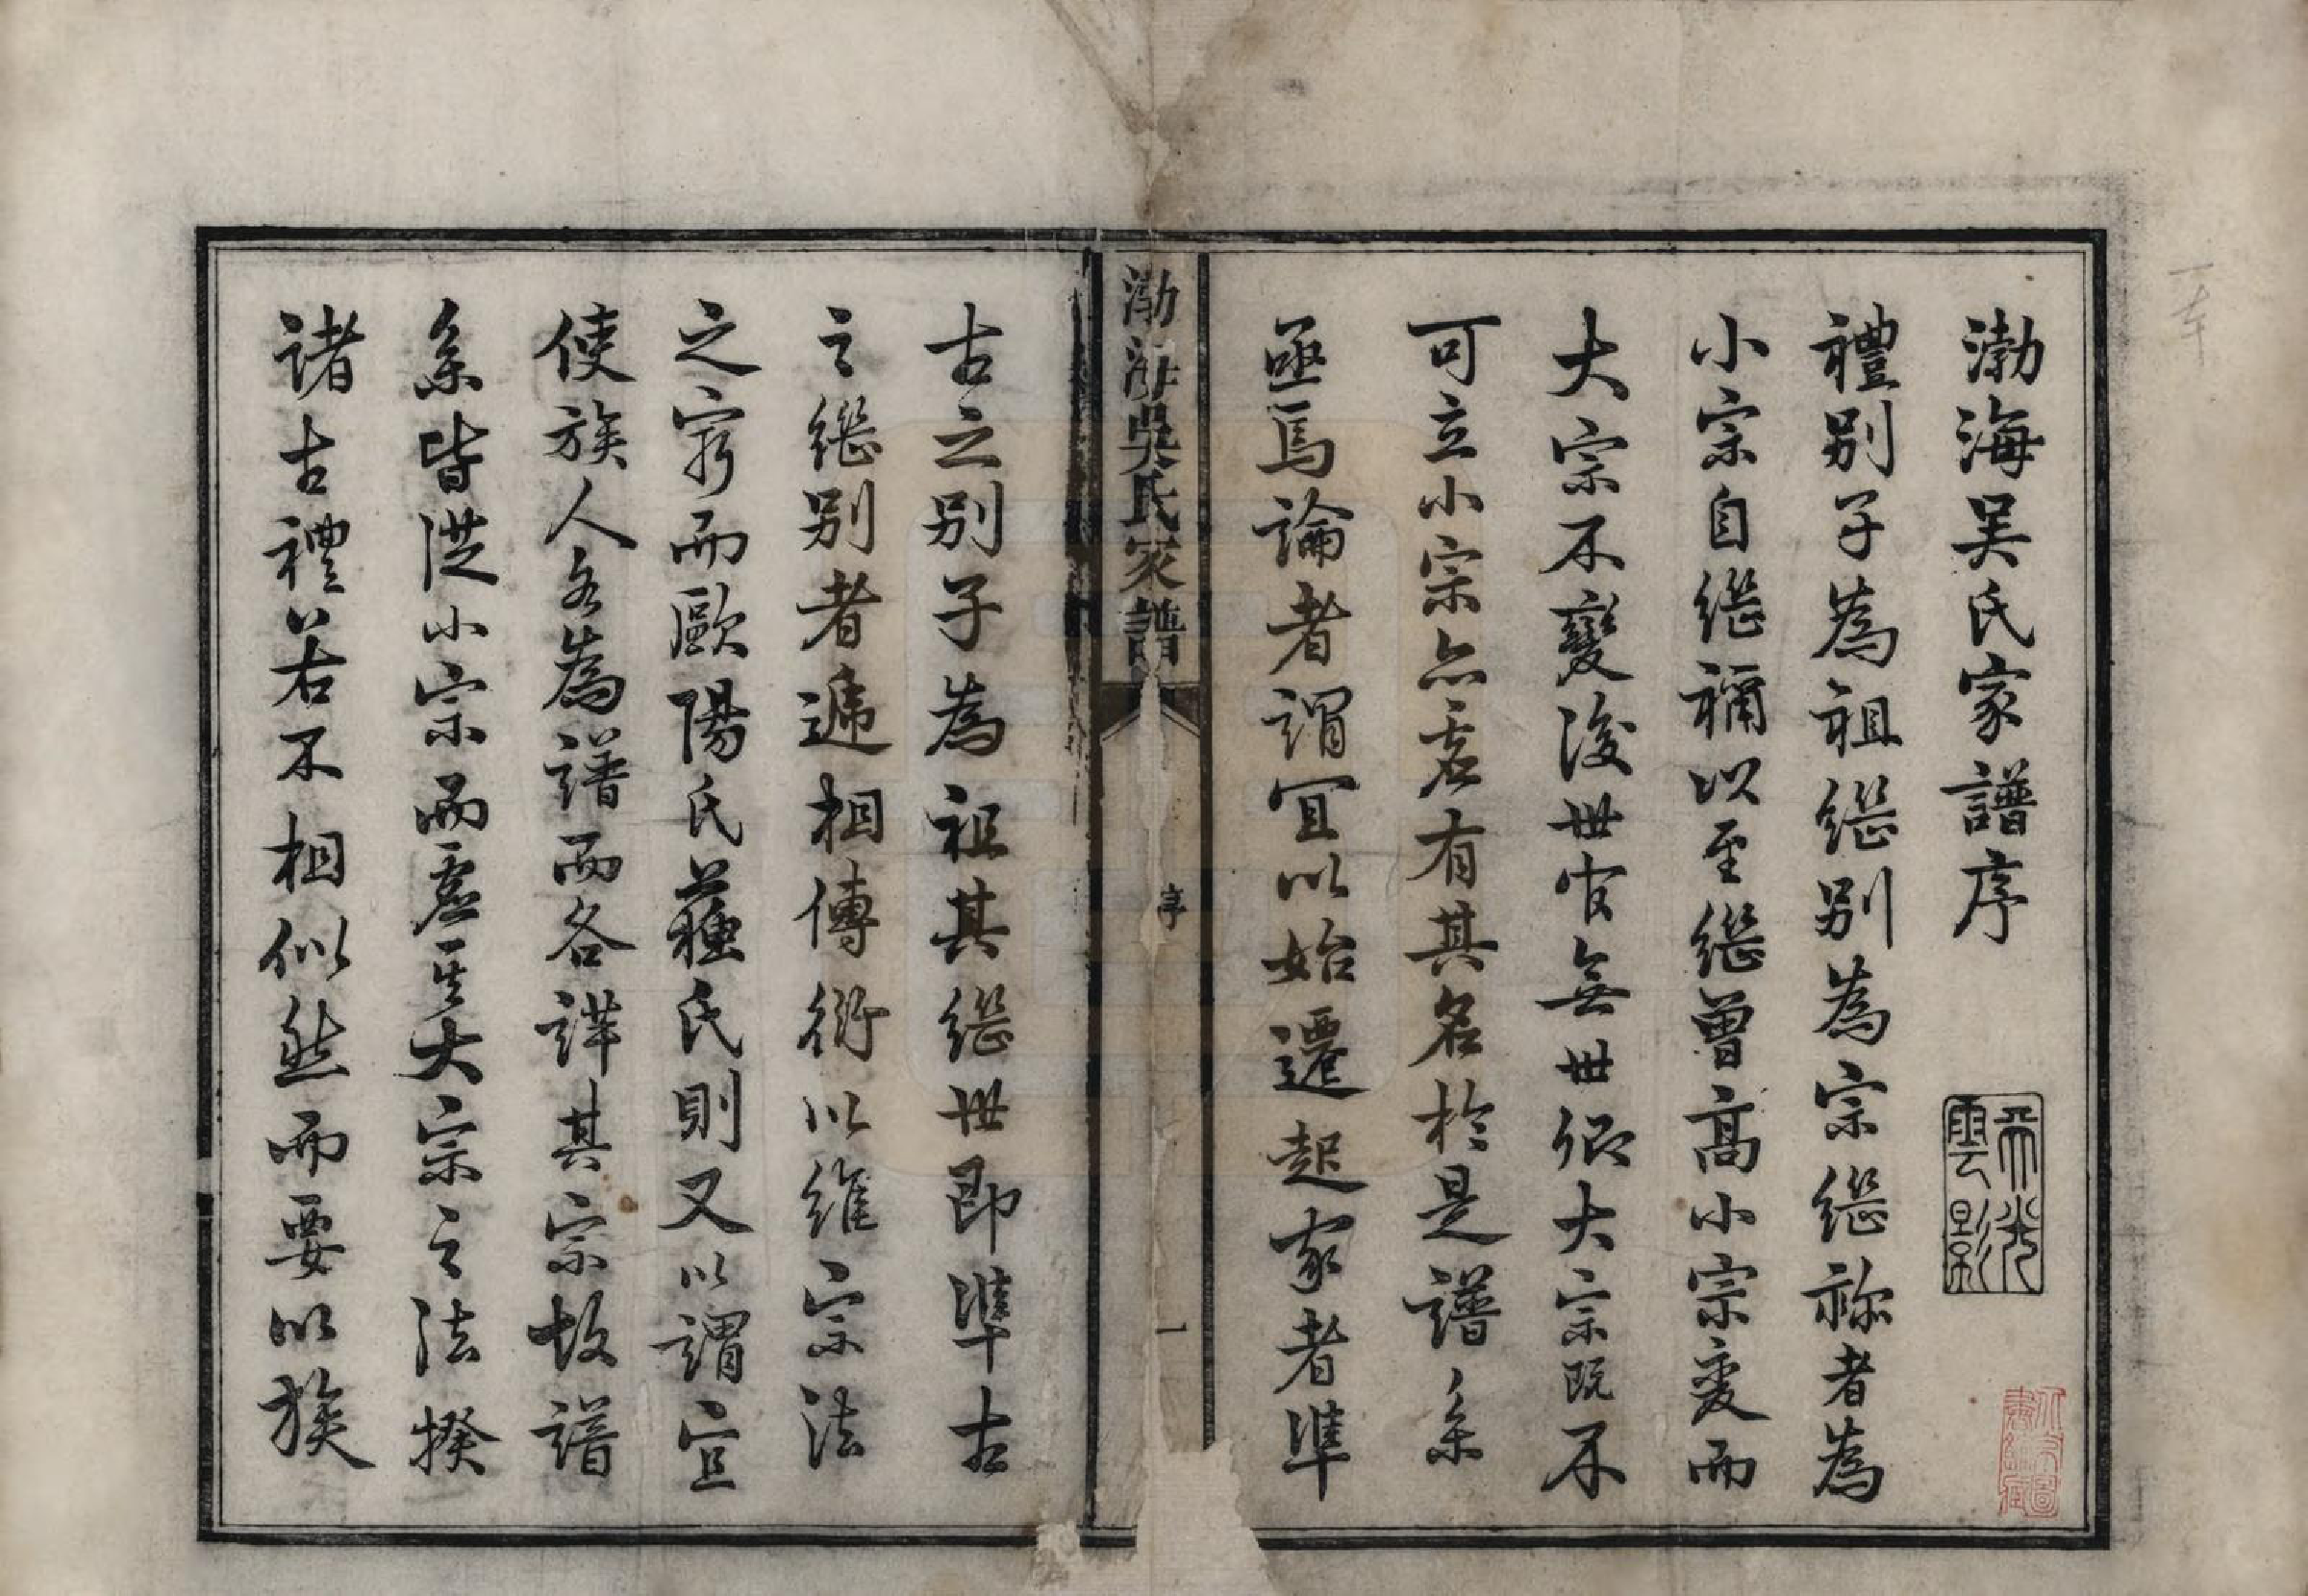 渤海吳氏家譜序
天光雲影
禮别子為祖繼别為宗繼祢者為
小宗自繼禰以至繼曾高小宗變而
大宗不變後世官無世卿大宗既不
可立小宗亦虗有其名於是譜系
亟焉論者謂宜以始遷起家者準
渤海吳氏家譜
序
一
古之别子為祖其繼世即準古
之繼别者遞相傳衍以維宗法
之窮而歐陽氏蘇氏則又以謂宜
使族人各為譜而各詳其宗故譜
系皆從小宗而虛其大宗之法揆
諸古禮以若不相似然而要以族